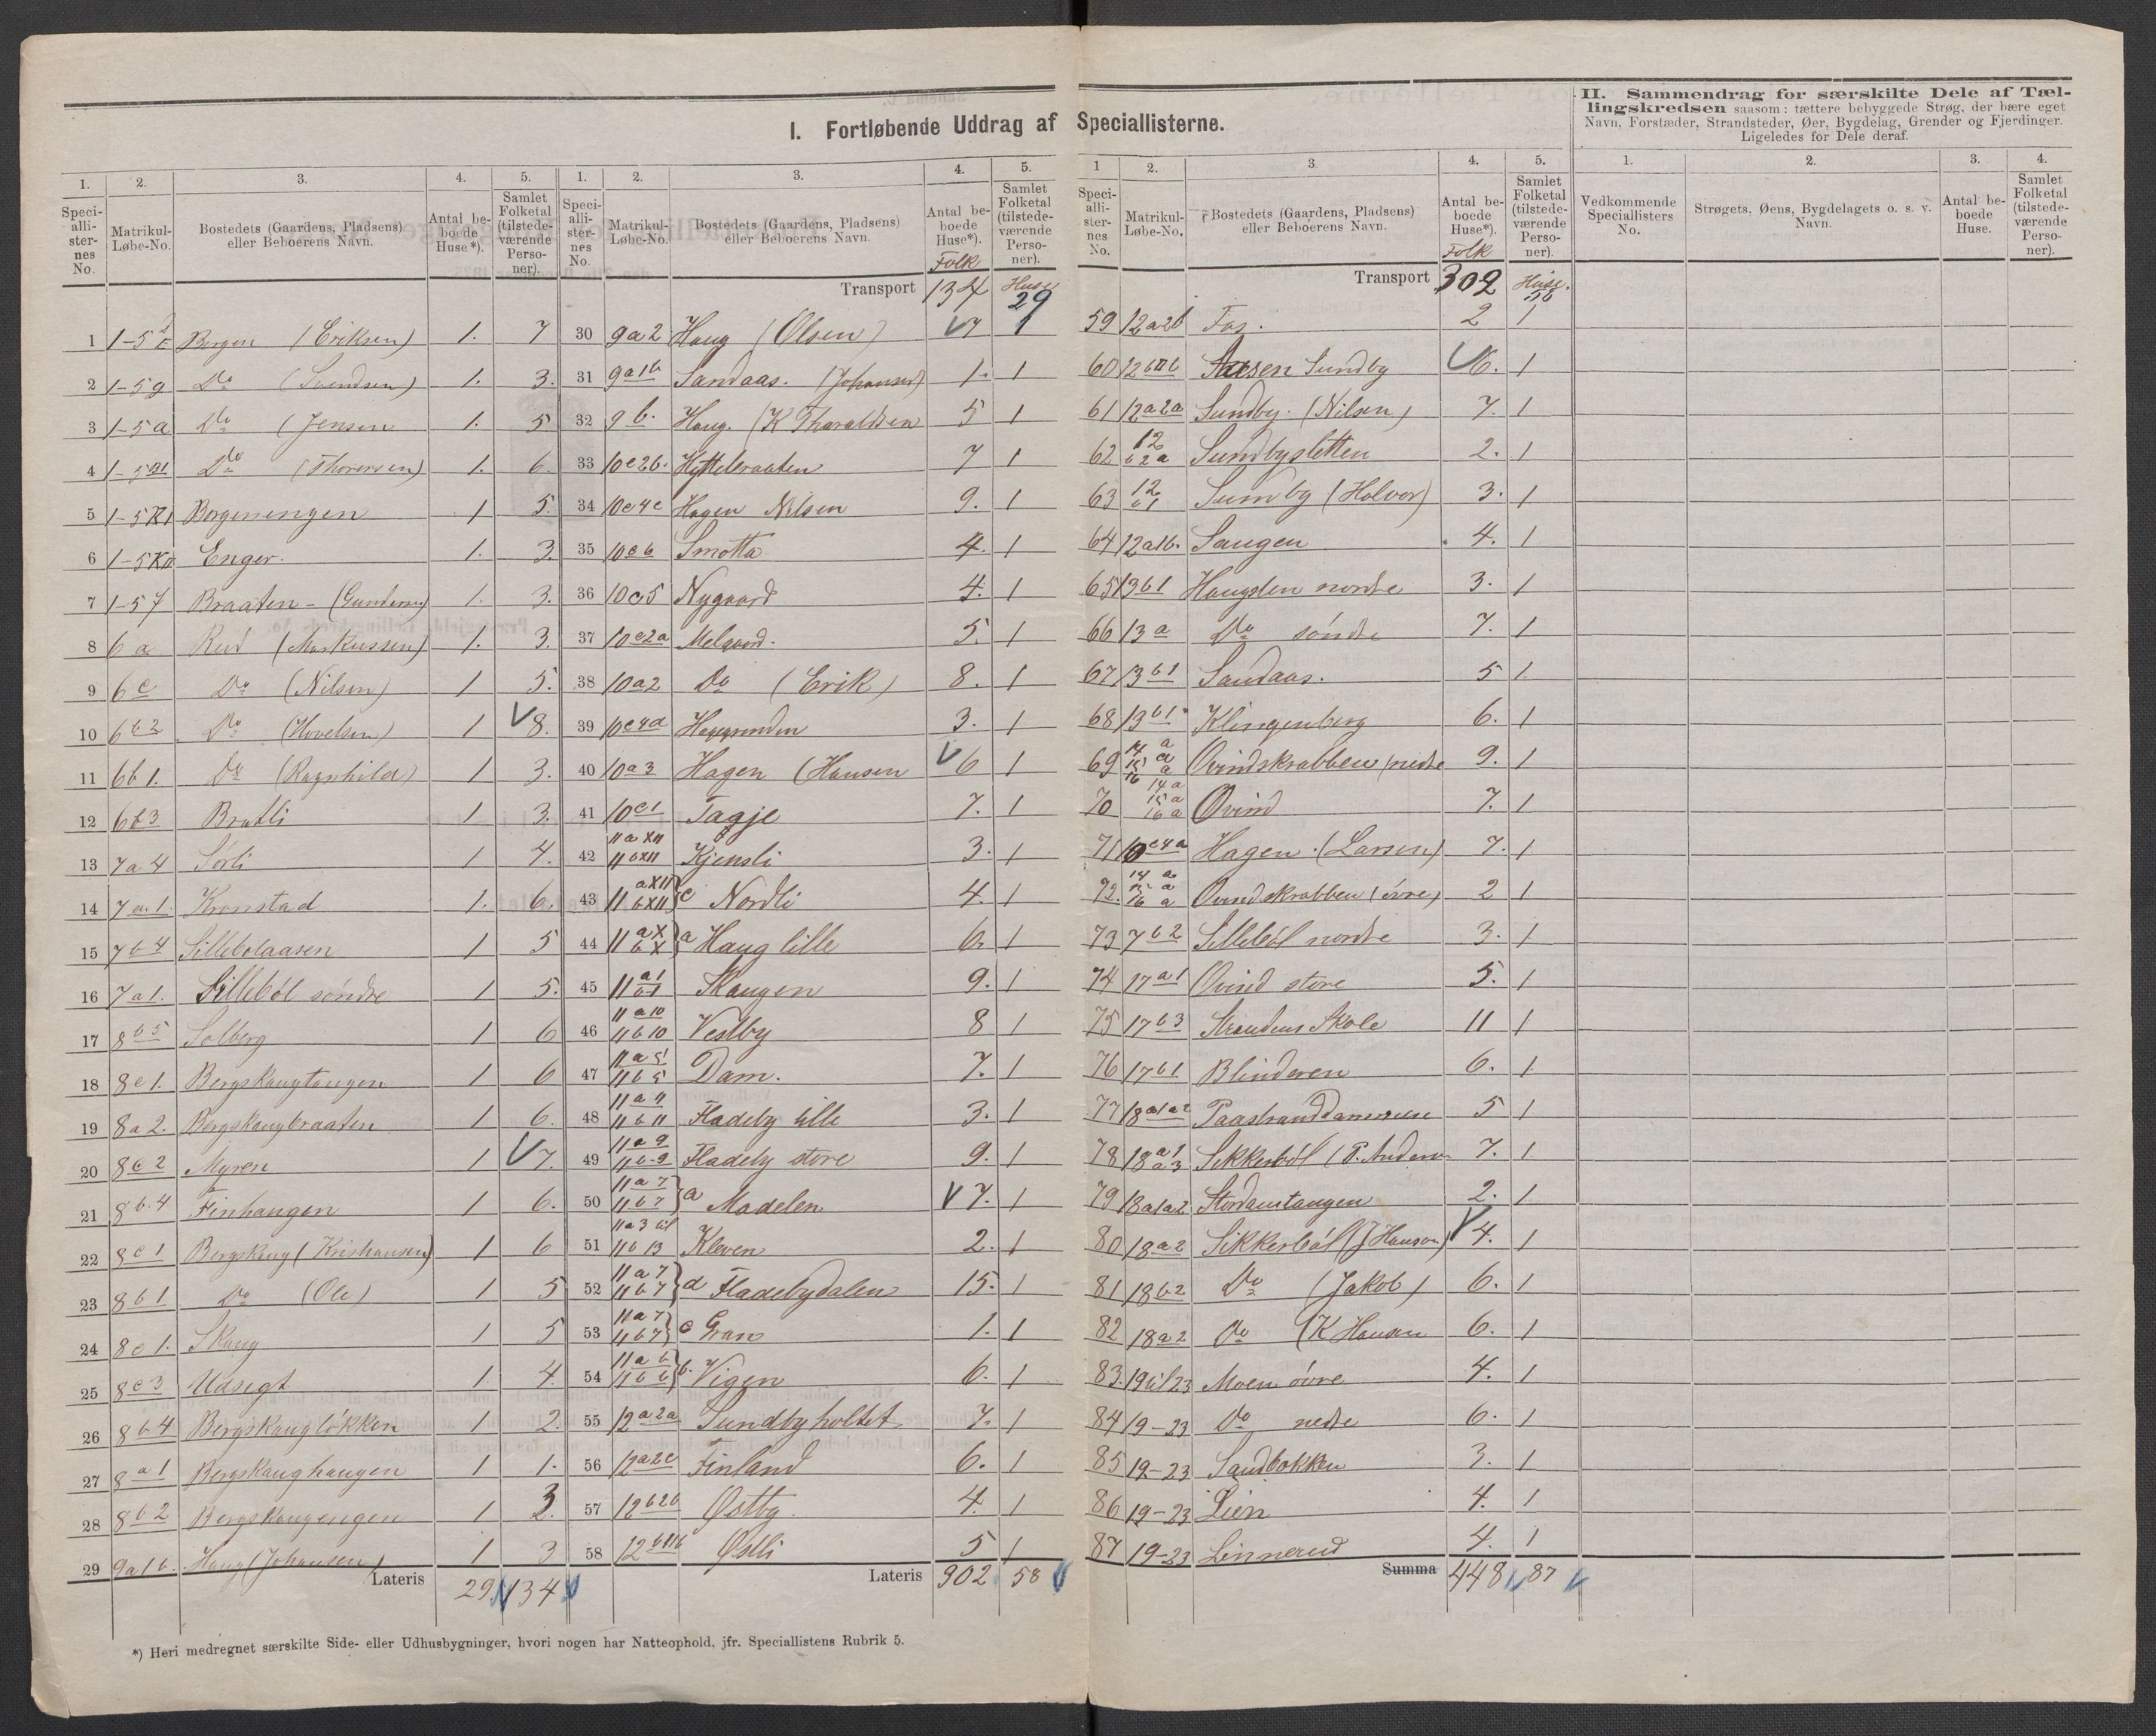 I. Fortløbende Uddrag af Speciallisterne.
II. Sammendrag for særskilte Dele af Tæl-
lingskredsen saasom: tættere bebyggede Strøg, der bære eget
Navn, Forstæder, Strandsteder, Øer, Bygdelag, Grender og Fjerdinger.
Ligeledes for Dele deraf.
1. 2. 3. 4. 5.
Speci-alli-ster-nes No. Matrikul-Løbe-No. Bostedets (Gaardens, Pladsens) eller Beboerens Navn. Antal be-boede Huse*). Samlet Folketal (tilstede-værende Perso-ner).
1 Borgen (Eriksen) 1. 7
2 1-5g Do (Svendsen) 1. 3.
3 1-5a Do (Jensen 1. 5
4 Do (Thoresen) 1. 6.
5 Borgenengen 1 5.
6 Enger. 1. 3.
7 1-57 Braaten - 1. 3.
8 6a Rud (Markussen) 1. 3.
9 6c Do (Nilsen) 1 5.
10 6b2 Do (Hovelsen) 1 8.
11 6b1. Do (Ragnhild) 1 3.
12 6b3 Bratli 1 3.
13 7a4 Sørli 1 4.
14 7a.1. Kronstad 1. 6.
15 7b4 Sillebolaasen 1 5
16 7a1. Sillebøl søndre 1 5.
17 8b5 Solberg 1 6
18 8c1. Bergskaugtangen 1 6
19 8a2. Bergskaugbraaten 1 6.
20 8c2 Myren 1 7.
21 8b.4 Finhaugen 1 6.
22 8c1 Bergskaug (Kristiansen) 1 6
23 8b1 Do (Ole) 1 5
24 8c1. Skaug 1 5
25 8c3 Udsigt 1 4
26 8b4 Bergskaugløkken 1 2.
27 8a1 Bergskaughaugen 1 1.
28 8b2 Bergskaugengen 1 3
29 9a1b. Haug (Johansen) 1 3
Lateris 29 134
*) Heri medregnet særskilte Side- eller Udhusbygninger, hvori nogen har Natteophold, jfr. Speciallistens Rubrik 5.
1. 2. 3. 4. 5.
Speci-alli-ster-nes No. Matrikul-Løbe-No. Bostedets (Gaardens, Pladsens) eller Beboerens Navn. Antal be-boede Huse*). Folk Samlet Folketal (tilstede-værende Perso-ner).
Transport 134 Huse 29
30 9a2 Haug (Olsen) 7 1
31 9a1b Sandaas. (Johansen) 1. 1
32 9b. Haug. (K Tharaldsen 5 1
33 10c2b. Hyttebraaten 7 1
34 10c4c Hagen Nilsen 9. 1
35 10c6 Smøtta 4. 1
36 10c5 Nygaard 4. 1
37 10c2a Melgaard. 5. 1
38 10a2 Do (Erik) 8. 1
39 10c4d 3. 1
40 10a3 Hagen (Hansen 6 1
41 10c1 Tagje 7. 1
42 11aXII 11bXII Kjensli 3. 1
43 11 aXII bXII} c Nordli 4. 1
44 11 aX bX} a Haug lille 6. 1
45 11 a1 b1 Skaugen 9. 1
46 11a10 11b10 Vestby 8 1
47 11a5 11b5 Dam. 7. 1
48 11a11 11b11 Fladeby lille 3. 1
49 11a9 11b9 Fladeby store 9. 1
50 11a7 11b7} a Madelen 7. 1
51 11a3 til 11b13 Kleven 2. 1
52 11a7 11b7} d Fladebydalen 15. 1
53 11a7 11b7} c Gran 1. 1
54 11a6 11b6} b. Vigen 6. 1
55 12a2a Sundbyholtet 7. 1
56 12a2c Finland 6. 1
57 12b2b Østby 4. 1
58 Østli 5 1
Lateris 302 58
1 2. 3. 4. 5.
Speci-alli-ster-nes No. Matrikul-Løbe-No. Bostedets (Gaardens, Pladsens) eller Beboerens Navn. Antal be-boede Huse*). Folk Samlet Folketal (tilstede-værende Perso-ner).
Transport 302 Huse. 58
59 12a2b Fos. 2 1
60 Aasen Sundby 6. 1
61 12a2a Sundby. (Nilsen) 7. 1
62 12 b2a Sundbysletten 2. 1
63 12 b1 Sundby (Halvor) 3. 1
64 12a1b. Saugen 4. 1
65 13b1 Haugsten nordre 3. 1
66 13a Do søndre 7. 1
67 13b1 Sandaas. 5 1
68 13b1 Klingenberg 6. 1
69 14 a 15 a 16 a Øvindskrabben (nedre 9. 1
70 14a 15a 16a Øvind 7. 1
71 10c4a Hagen. (Larsen) 7. 1
72. 14 a 15 a 16 a Øvindskrabben (øvre) 2 1
73 7b2 Sillebøl nordre 3. 1
74 17a1 Øvind store 5. 1
75 17b3 Strandens Skole 11 1
76 17b1 Blinderen 6. 1
77 18a1a2 Paastranddammen 5 1
78 18 a1 a3 Sikkerbøl (P. Anders 7. 1
79 18a1a2 Stordamtangen 2. 1
80 18a2 Sikkerbøl (J Hanson) 4. 1
81 18b2 Do (Jakob) 6. 1
82 18a2 Do (K Hansen 6. 1
83. 19til23 Moen øvre 4. 1
84 19-23 Do nedre 6. 1
85 19-23 Sandbakken 3. 1
86 19-23 Lien 4. 1
87 19-23 Linnerud 4. 1
Summa 448 87
1. 2. 3. 4.
Vedkommende Speciallisters No. Strøgets, Øens, Bygdelagets o. s. v. Navn. Antal be-boede Huse. Samlet Folketal (tilstede-værende Perso-ner).